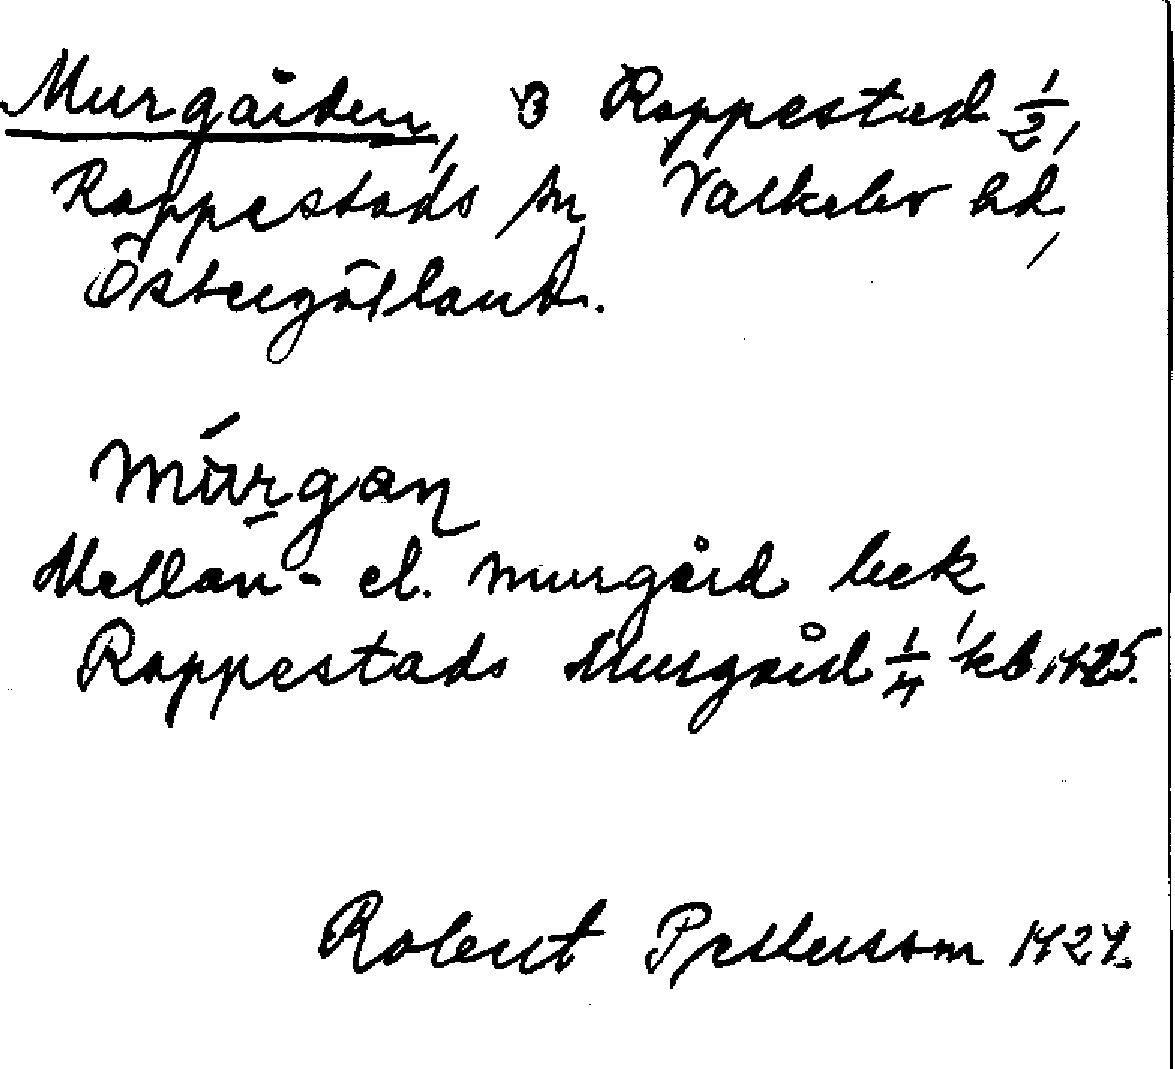 Murgården, 3 Rappestad 1/2,
Rappestads sn, Valkebo hd,
Östergötland.
múrgan
Mellan- el. murgård bek,
Rappestads Murgård 1/4, kb 1725.
Robert Pettersson 1927.